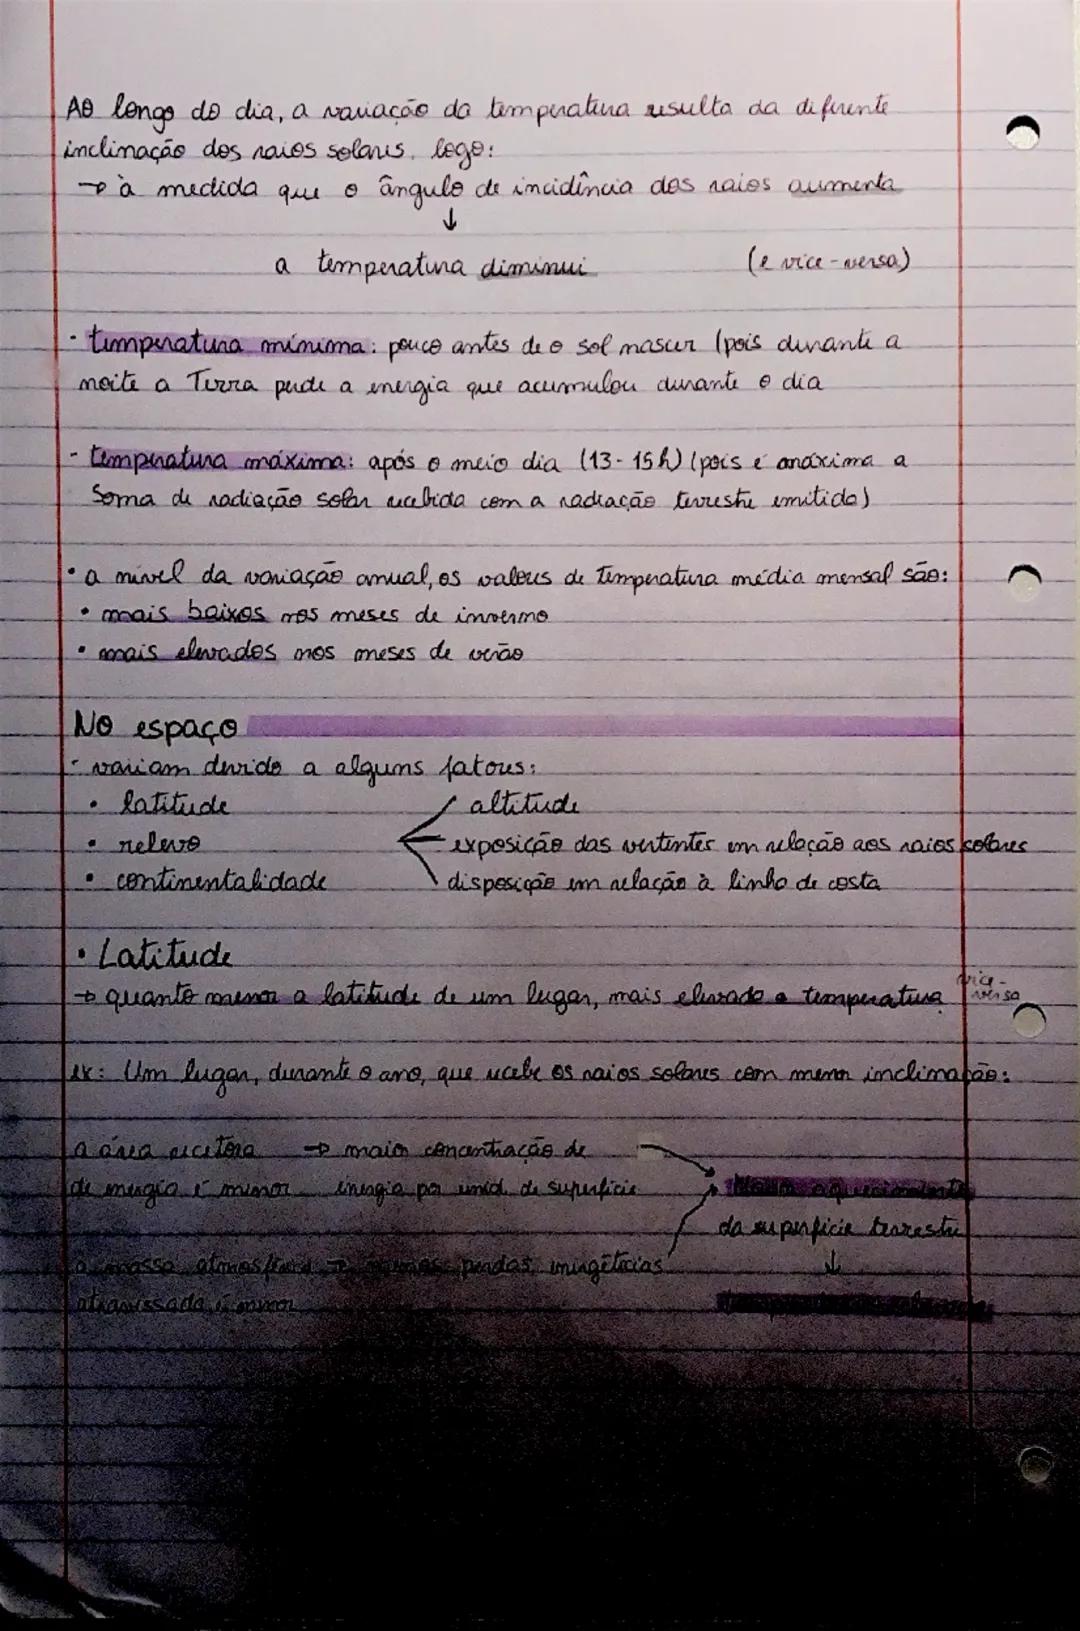 Ao longo do dia, a variação da temperatura resulta da diferente
inclinação dos raios solares, logo:
→ à medida que o ângulo de incidência dos raios aumenta
↓
a temperatura diminui (e vice-versa)
- temperatura mínima: pouco antes de o sol nascer (pois durante a
noite a Terra perde a energia que acumulou durante o dia
- temperatura máxima: após o meio dia (13-15h) (pois é máxima a
Soma de radiação solar recebida com a radiação terrestre emitida)
• a nível da variação anual, os valores de temperatura média mensal são:
• mais baixos nos meses de inverno
• mais elevados nos meses de verão
No espaço
- variam devido a alguns fatores:
• latitude
• relevo
• continentalidade
altitude
exposição das vertentes em relação aos raios solares
disposição em relação à linha de costa
• Latitude
→ quanto menor a latitude de um lugar, mais elevada a temperatura vice-
versa
ex: Um lugar, durante o ano, que recebe os raios solares com menor inclinação:
a área recetora → maior concentração de
de energia é menor energia por unid. de superfície
a massa atmosférica → menos perdas energéticas
atravessada é menor
Maior aquecimento
da superfície terrestre
↓